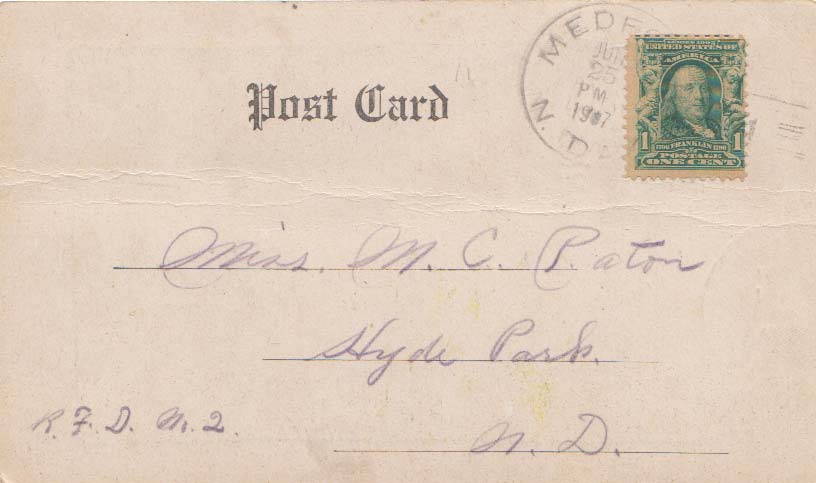 MEDF
JUN
25
P.M.
1907
N. D.
SERIES 1902
UNITED STATES OF
AMERICA
1706 FRANKLIN 1790
1 POSTAGE 1
ONE CENT
Post Card
Miss. M. C. Paton
Hyde Park.
R. F. D. No. 2.
N. D.